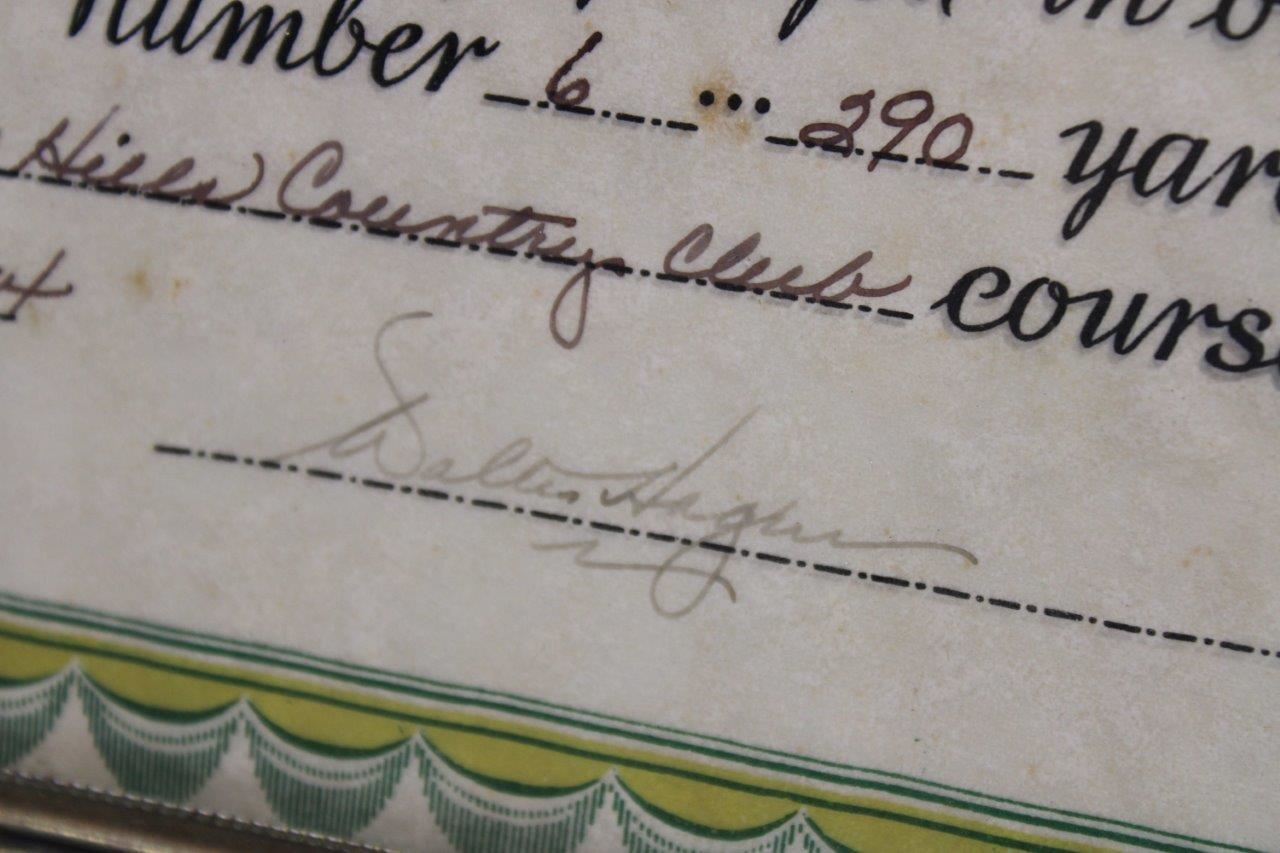 number 6 ... 290 yar
Hills Country Club cours
Walter Hagen